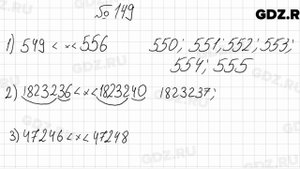 №149
GDZ.RU
1) 549 < x < 556 550; 551; 552; 553;
554; 555
2) 1823236 < x < 1823240 1823237;
3) 47246 < x < 47248